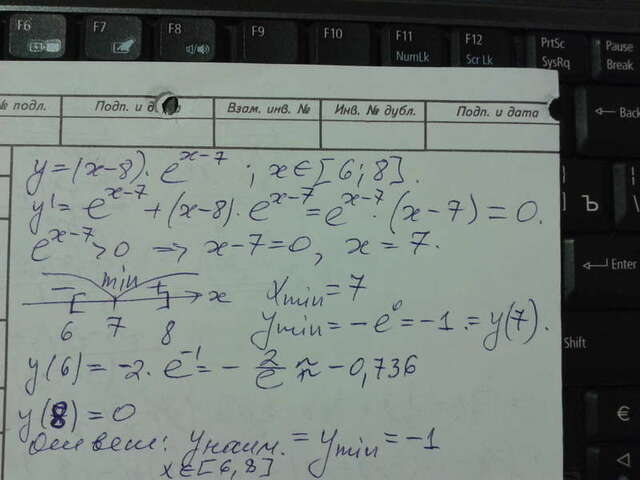 F6 F7 F8 F9 F10 F11 F12 PrtSc Pause
NumLk Scr Lk SysRq Break
№ подл. Подп. и дата Взам. инв. № Инв. № дубл. Подп. и дата
Back
y = (x-8)·e^(x-7) ; x∈[6;8].
y' = e^(x-7) + (x-8)·e^(x-7) = e^(x-7)·(x-7) = 0.
Ъ
e^(x-7)>0 => x-7=0, x = 7.
Enter
− min + x
6 7 8
x min = 7
y min = -e⁰ = -1 = y(7).
Shift
y(6) = -2·e^(-1) = - 2/e ≈ -0,736
y(8) = 0
€
Ответ: y наим. = y min = -1
x∈[6,8]